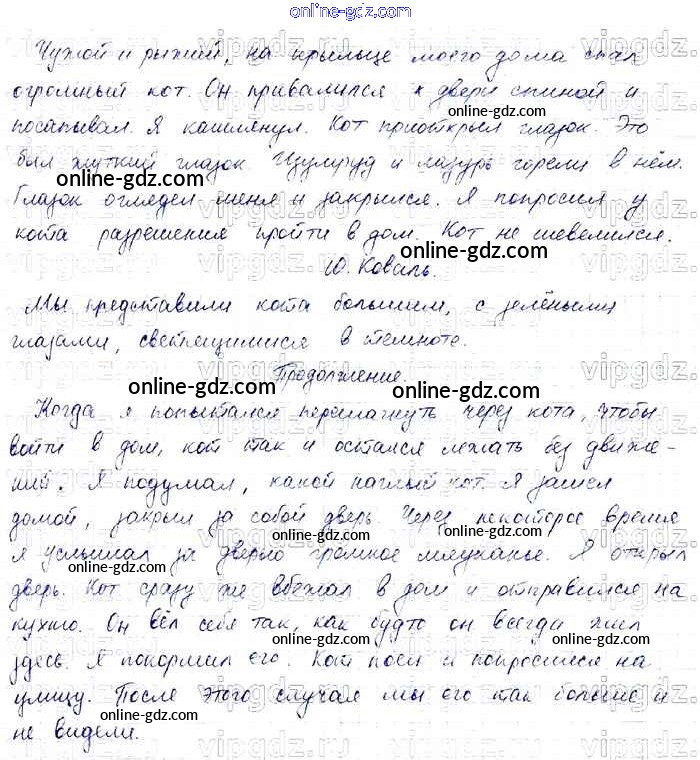 online-gdz.com
Чужой и рыжий, на крыльце моего дома спал
огромный кот. Он привалился к двери спиной и
посапывал. Я кашлянул. Кот приоткрыл глазок. Это
был жуткий глазок. Изумруд и лазурь горели в нём.
Глазок оглядел меня и закрылся. Я попросил у
кота разрешения пройти в дом. Кот не шевелился.
Ю. Коваль.
Мы представили кота большим, с зелёными
глазами, светящимися в темноте.
Продолжение.
Когда я попытался перешагнуть через кота, чтобы
войти в дом, кот так и остался лежать без движе-
ний. Я подумал, какой наглый кот. Я зашел
домой, закрыл за собой дверь. Через некоторое время
я услышал за дверью громкое мяуканье. Я открыл
дверь. Кот сразу же вбежал в дом и отправился на
кухню. Он вёл себя так, как будто он всегда жил
здесь. Я покормил его. Кот поел и попросился на
улицу. После этого случая мы его так больше и
не видели.